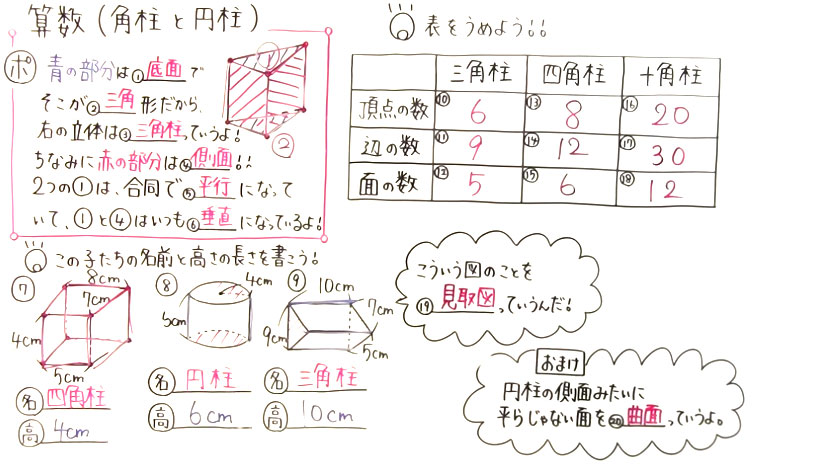 算数(角柱と円柱)
ポ 青の部分は①底面で
そこが②三角形だから、
右の立体は③三角柱っていうよ!
ちなみに赤の部分は④側面!!
2つの①は、合同で⑤平行になって
いて、①と④はいつも⑥垂直になっているよ!
②
表をうめよう!!
三角柱 四角柱 十角柱
頂点の数 ⑩6 ⑬8 ⑯20
辺の数 ⑪9 ⑭12 ⑰30
面の数 ⑫5 ⑮6 ⑱12
この子たちの名前と高さの長さを書こう!
⑦ 8cm 7cm 4cm 5cm
名 四角柱
高 4cm
⑧ 4cm 5cm
名 円柱
高 6cm
⑨ 10cm 7cm 9cm 5cm
名 三角柱
高 10cm
こういう図のことを
⑲見取図っていうんだ!
おまけ
円柱の側面みたいに
平らじゃない面を⑳曲面っていうよ。